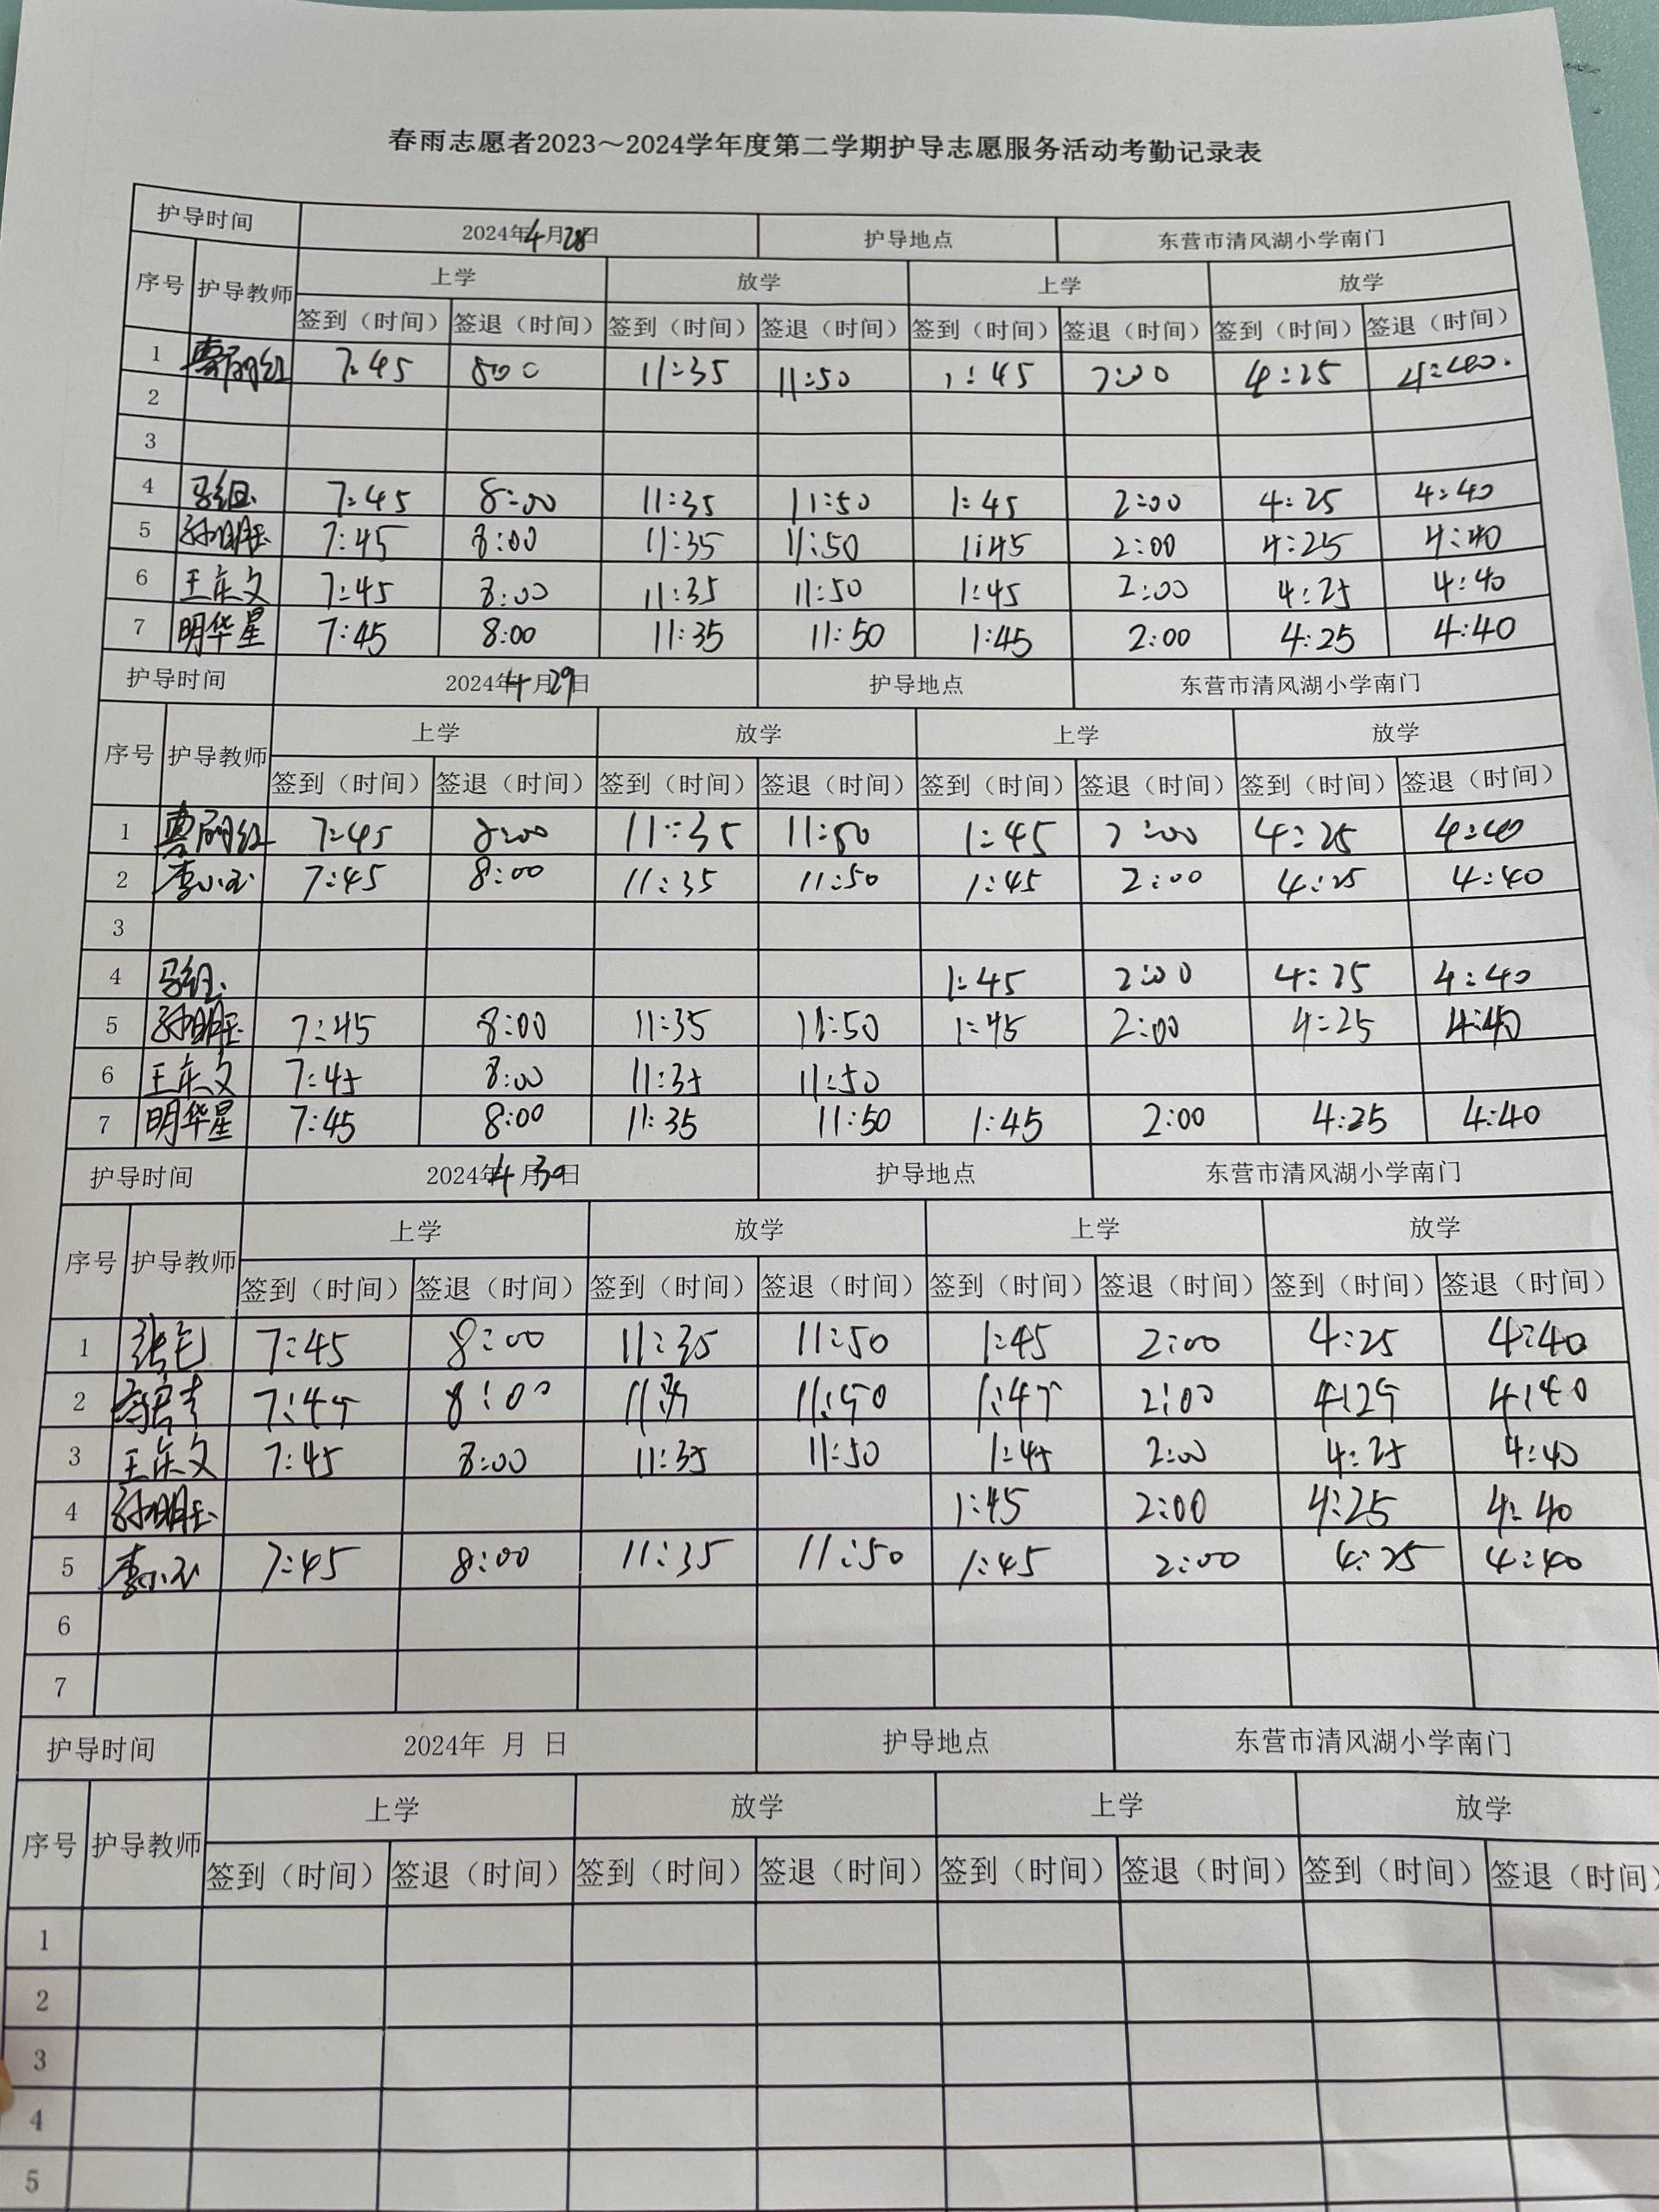 春雨志愿者2023～2024学年度第二学期护导志愿服务活动考勤记录表
护导时间 2024年4月28日 护导地点 东营市清风湖小学南门
序号 护导教师 上学 放学 上学 放学
签到（时间） 签退（时间） 签到（时间） 签退（时间） 签到（时间） 签退（时间） 签到（时间） 签退（时间）
1 7:45 8:00 11:35 11:50 1:45 2:00 4:25 4:40
2
3
4 7:45 8:00 11:35 11:50 1:45 2:00 4:25 4:40
5 7:45 8:00 11:35 11:50 1:45 2:00 4:25 4:40
6 王庆文 7:45 8:00 11:35 11:50 1:45 2:00 4:25 4:40
7 明华星 7:45 8:00 11:35 11:50 1:45 2:00 4:25 4:40
护导时间 2024年4月29日 护导地点 东营市清风湖小学南门
序号 护导教师 上学 放学 上学 放学
签到（时间） 签退（时间） 签到（时间） 签退（时间） 签到（时间） 签退（时间） 签到（时间） 签退（时间）
1 7:45 8:00 11:35 11:50 1:45 2:00 4:25 4:40
2 7:45 8:00 11:35 11:50 1:45 2:00 4:25 4:40
3
4 1:45 2:00 4:25 4:40
5 7:45 8:00 11:35 11:50 1:45 2:00 4:25 4:40
6 王庆文 7:45 8:00 11:35 11:50
7 明华星 7:45 8:00 11:35 11:50 1:45 2:00 4:25 4:40
护导时间 2024年4月30日 护导地点 东营市清风湖小学南门
序号 护导教师 上学 放学 上学 放学
签到（时间） 签退（时间） 签到（时间） 签退（时间） 签到（时间） 签退（时间） 签到（时间） 签退（时间）
1 7:45 8:00 11:35 11:50 1:45 2:00 4:25 4:40
2 7:45 8:00 11:35 11:50 1:45 2:00 4:25 4:40
3 王庆文 7:45 8:00 11:35 11:50 1:45 2:00 4:25 4:40
4 1:45 2:00 4:25 4:40
5 7:45 8:00 11:35 11:50 1:45 2:00 4:25 4:40
6
7
护导时间 2024年 月 日 护导地点 东营市清风湖小学南门
序号 护导教师 上学 放学 上学 放学
签到（时间） 签退（时间） 签到（时间） 签退（时间） 签到（时间） 签退（时间） 签到（时间） 签退（时间）
1
2
3
4
5